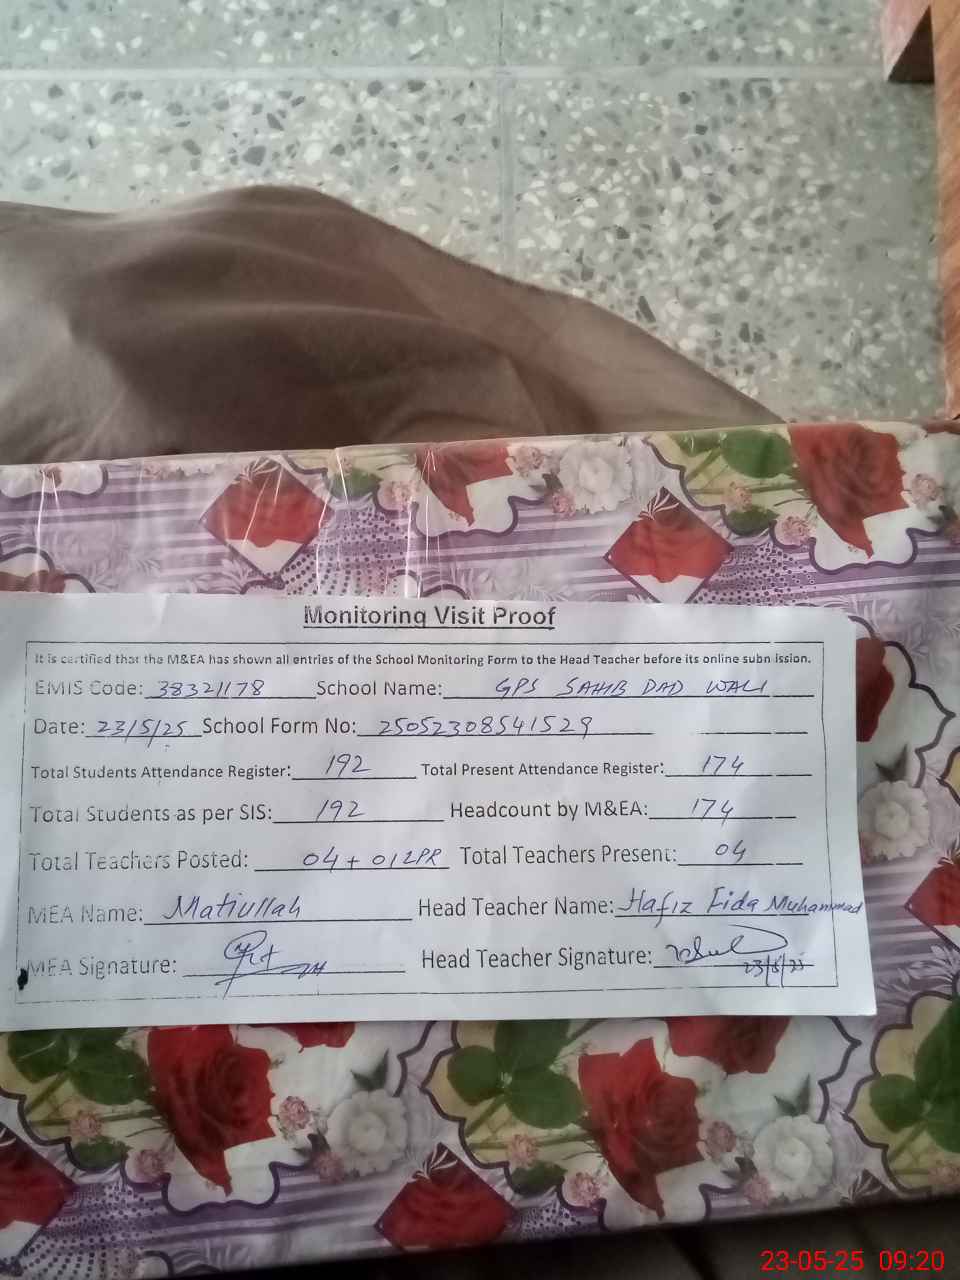 Monitoring Visit Proof
It is certified that the M&EA has shown all entries of the School Monitoring Form to the Head Teacher before its online subn ission.
EMIS Code: 38321178 School Name: GPS SAHIB DAD WALI
Date: 23/5/25 School Form No: 25052308541529
Total Students Attendance Register: 192 Total Present Attendance Register: 174
Total Students as per SIS: 192 Headcount by M&EA: 174
Total Teachers Posted: 04 + 01 LPR Total Teachers Present: 04
MEA Name: Matiullah Head Teacher Name: Hafiz Fida Muhammad
MEA Signature: Head Teacher Signature:
23/5/25
23-05-25 09:20